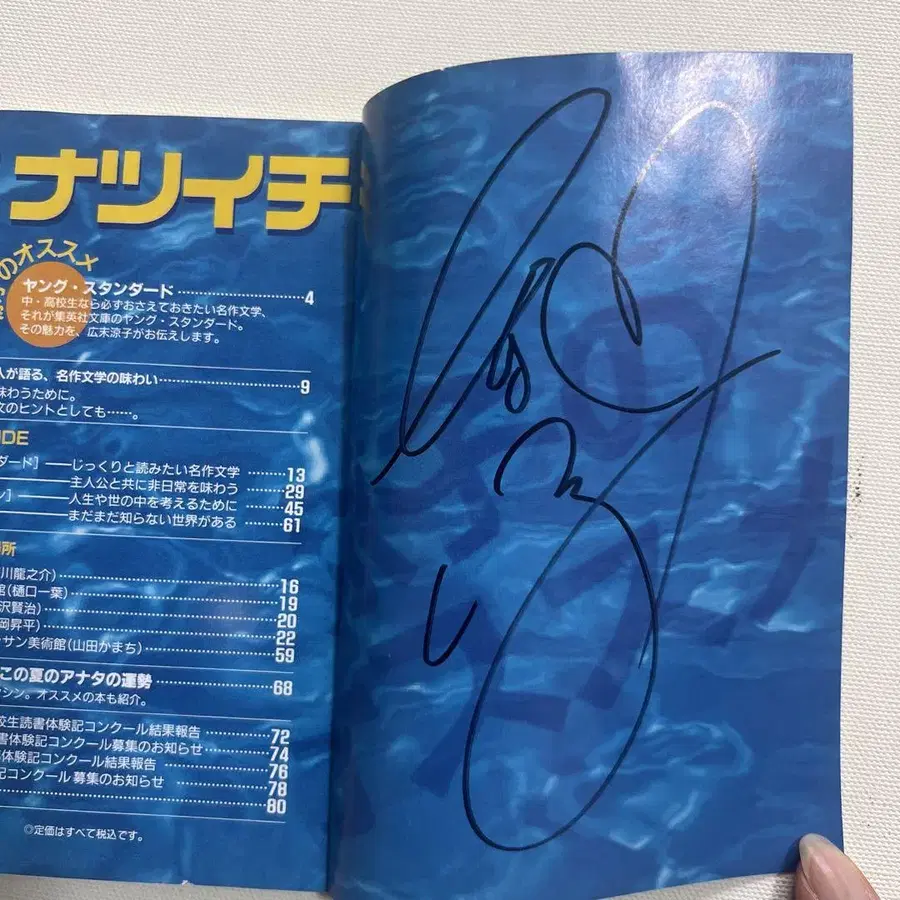 ナツイチ
のオススメ
ヤング・スタンダード 4
中・高校生なら必ずおさえておきたい名作文学、
それが集英社文庫のヤング・スタンダード。
その魅力を、広末涼子がお伝えします。
人が語る、名作文学の味わい 9
味わうために。
文のヒントとしても……。
UDE
ダード］──じっくりと読みたい名作文学 13
──主人公と共に非日常を味わう 29
ン］──人生や世の中を考えるために 45
──まだまだ知らない世界がある 61
所
川龍之介） 16
館（樋口一葉） 19
沢賢治） 20
岡昇平） 22
サン美術館（山田かまち） 59
この夏のアナタの運勢 68
シン。オススメの本も紹介。
校生読書体験記コンクール結果報告 72
書体験記コンクール募集のお知らせ 74
体験記コンクール結果報告 76
記コンクール募集のお知らせ 78
80
◎定価はすべて税込です。